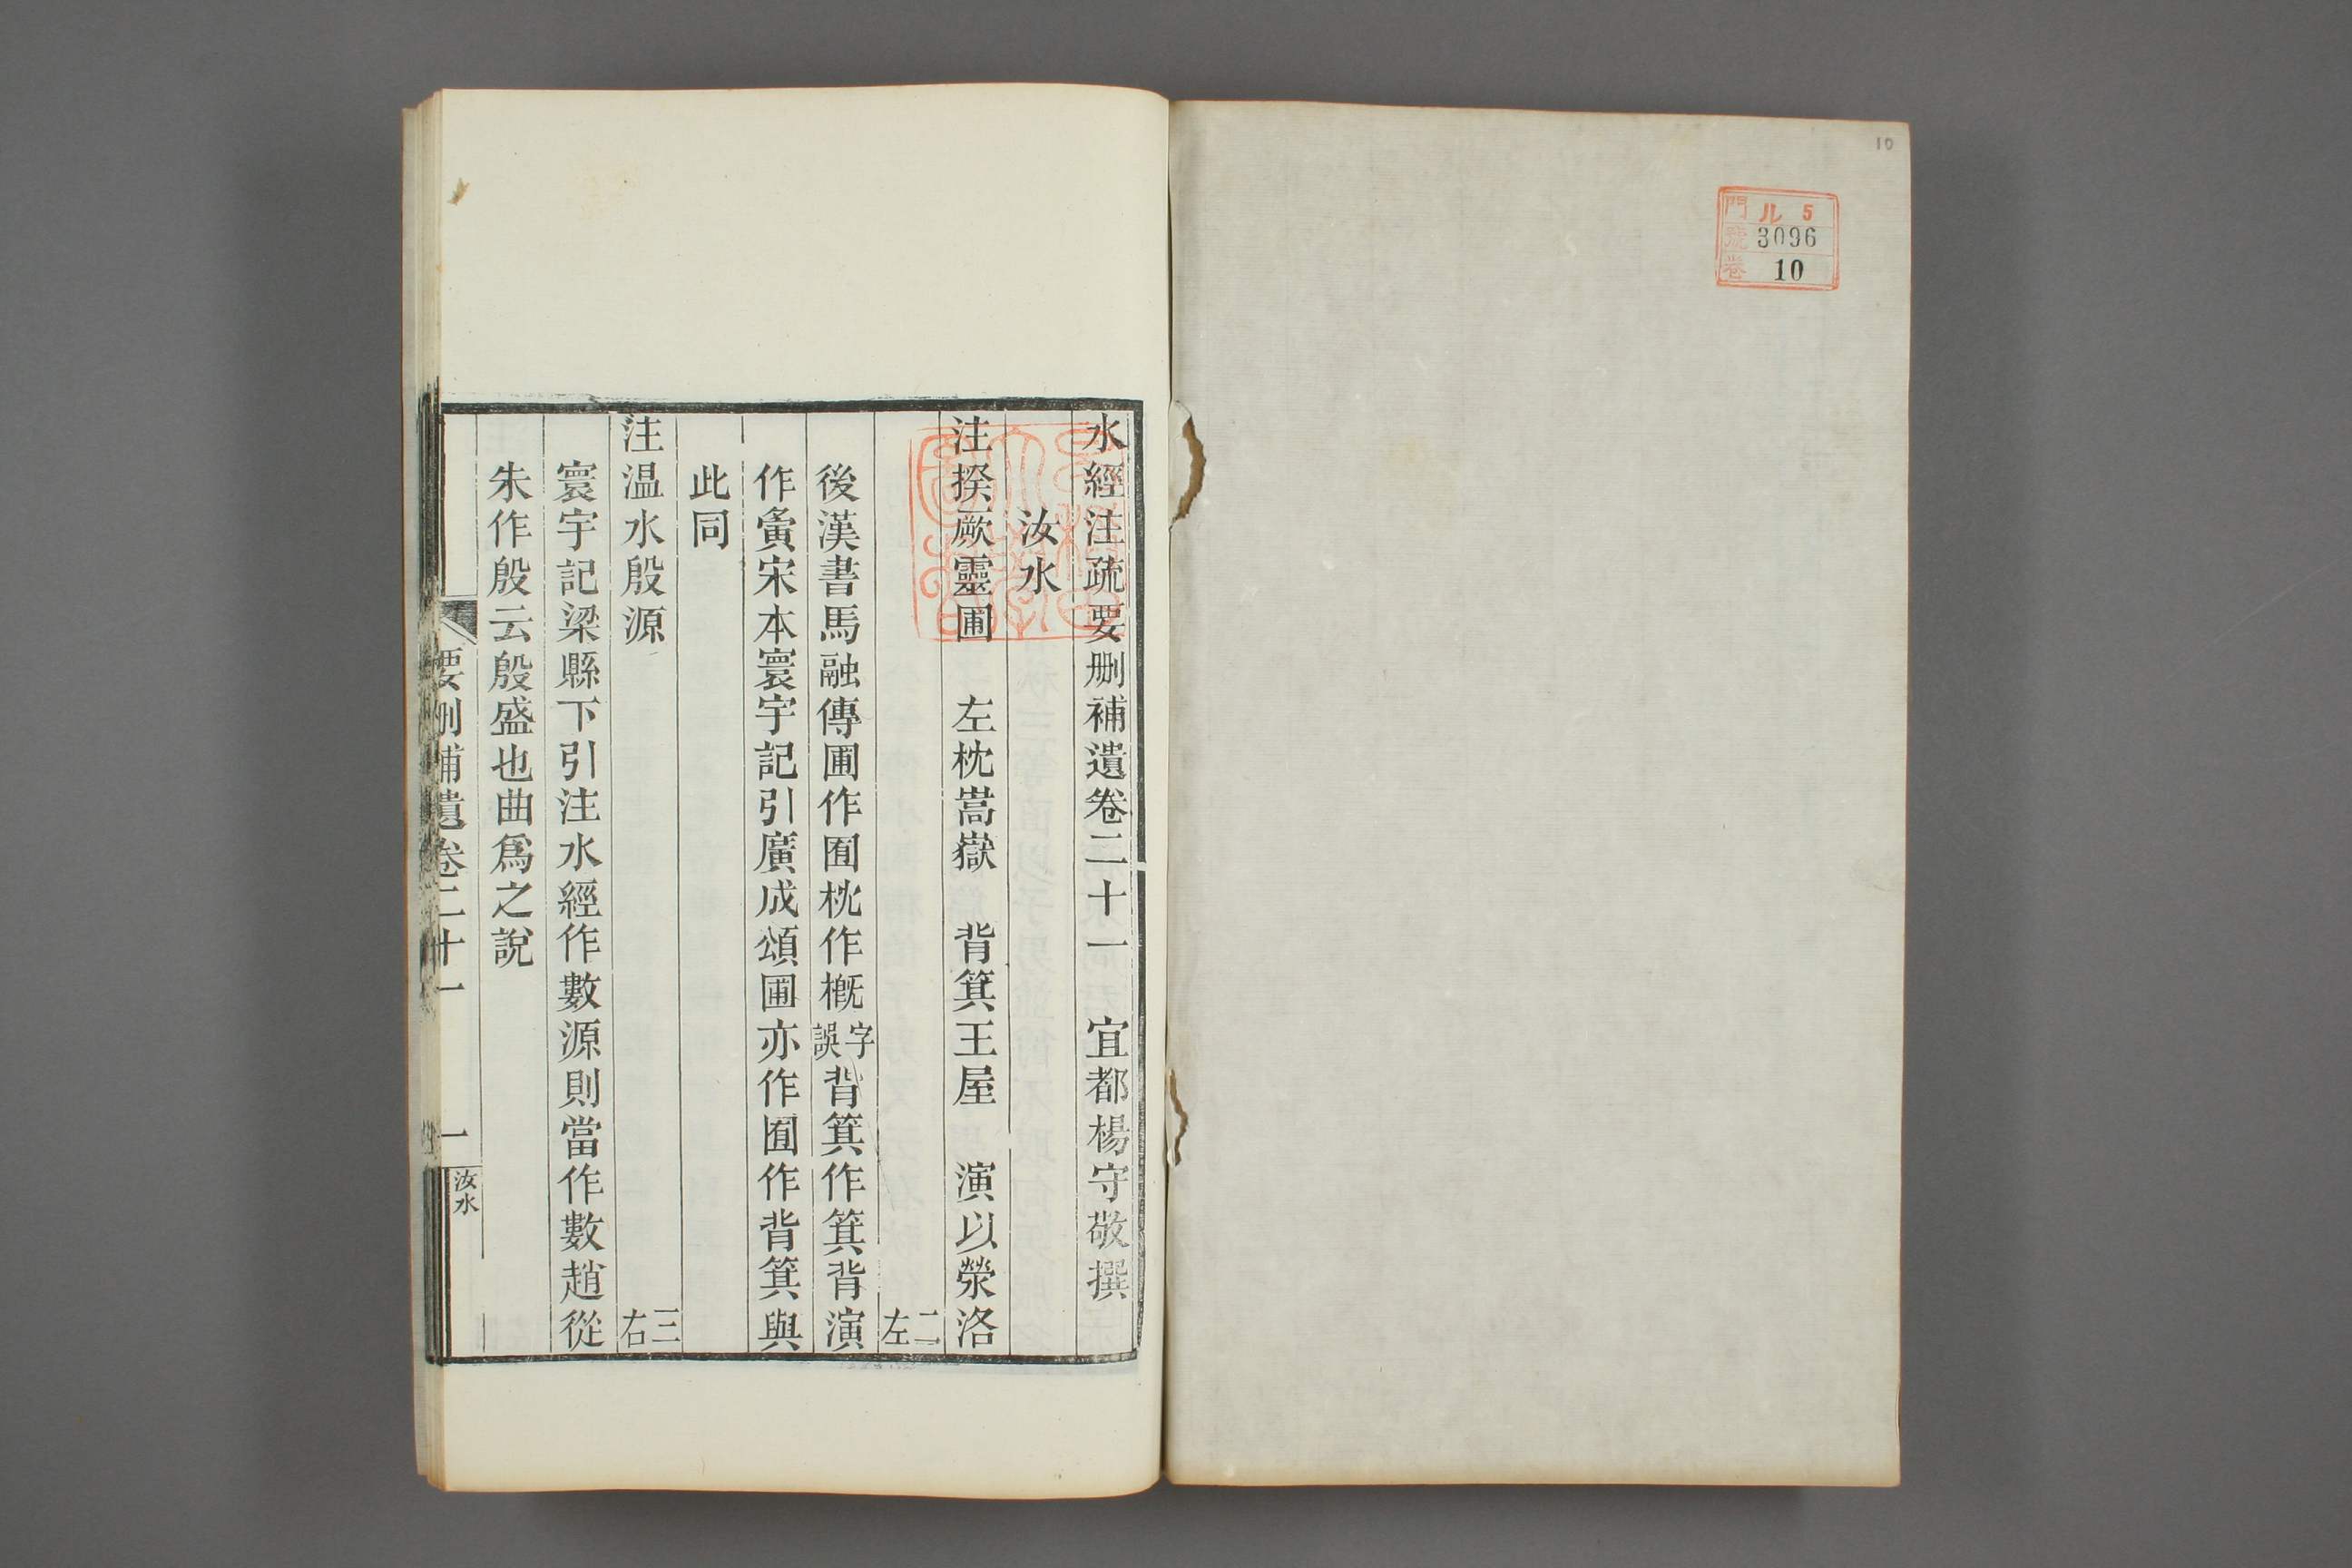 10
門 ル 5
號 3096
卷 10
水經注疏要刪補遺卷二十一 宜都楊守敬撰
汝水
注揆厥靈圃 左枕嵩嶽 背箕王屋 演以滎洛
二左
後漢書馬融傳圃作囿枕作概字誤背箕作箕背演
作夤宋本寰宇記引廣成頌圃亦作囿作背箕與
此同
注温水殷源 三右
寰宇記梁縣下引注水經作數源則當作數趙從
朱作殷云殷盛也曲爲之說
要刪補遺卷二十一 一 汝水